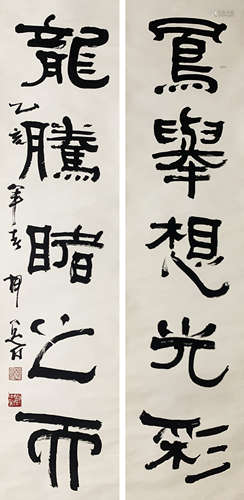 鳳舉想光彩
龍騰睹之而
乙亥年春